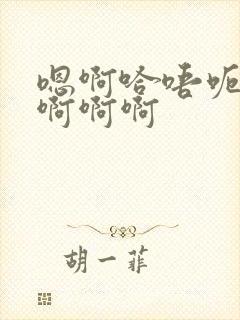 嗯啊哈唔呃
啊啊啊
胡一菲